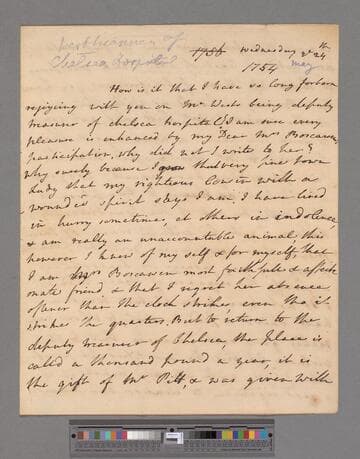 West treasurer of
Chelsea Hospital
1756 Wednesday ye 24th
1754 May
How is it that I have so long forborn
rejoycing with you on Mr Wests being deputy
treasurer of Chelsea hospital I am sure every
pleasure is enhanced by my Dear Mrs Boscawen's
participation, why did not I write to her?
why surely because I that very fine Town
Lady that my righteous Cousin with a
wounded spirit says I am, I have lived
in hurry sometimes, at others in indolence,
& am really an unaccountable animal, this
however I know of my self & for my self, that
I am Mrs Boscawen most faithfull & affectio
nate friend & that I regret her absence
oftner than the clock strikes, even tho it
strikes the quarters. But to return to the
deputy treasurer of Chelsea the place is
called a thousand pound a year it is
the gift of Mr Pitt, & was given with